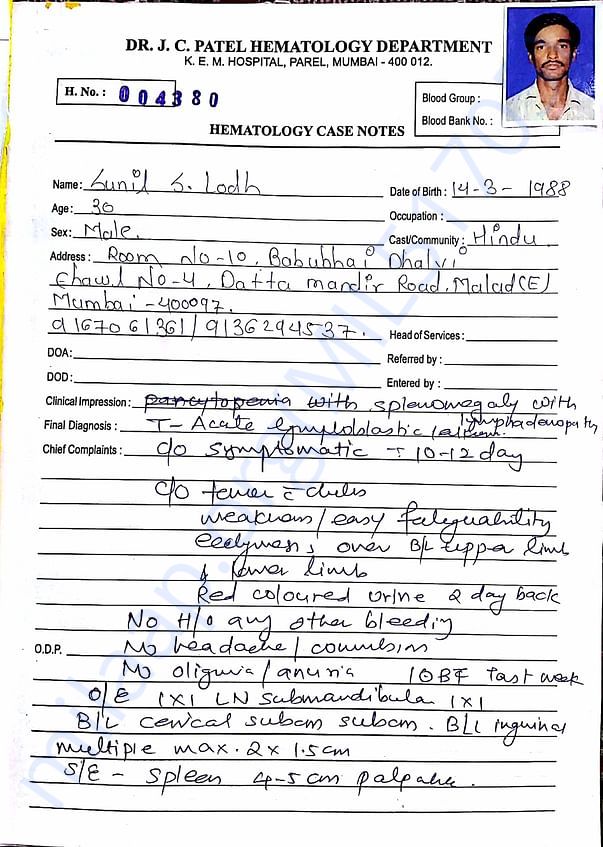 DR. J. C. PATEL HEMATOLOGY DEPARTMENT
K. E. M. HOSPITAL, PAREL, MUMBAI - 400 012.
H. No. : 004380
Blood Group :
Blood Bank No. :
HEMATOLOGY CASE NOTES
Name: Sunil S. Lodh
Date of Birth : 14-3-1988
Age : 30
Occupation :
Sex: Male.
Cast/Community : Hindu
Address : Room No-10, Babubhai Dhalvi
Chawl No-4, Datta mandir Road, Malad(E)
Mumbai - 400097.
9167061361 / 9136294537.
Head of Services :
DOA:
Referred by :
DOD:
Entered by :
Clinical Impression : pancytopenia with splenomegaly with
lymphadenopathy
Final Diagnosis : T- Acute lymphoblastic
Chief Complaints : c/o symptomatic 10-12 day
c/o fever c chills
weakness / easy fatiguability
over B/L upper limb
& lower limb
Red coloured urine 2 day back
No H/o any other bleeding
O.D.P. No headache / convulsion
No oliguria / anuria 10BT last week
O/E 1x1 LN submandibula 1x1
B/L cervical subcm subcm. B/L inguinal
multiple max. 2 x 1.5cm
S/E - Spleen 4-5 cm palpable.
milaap.org